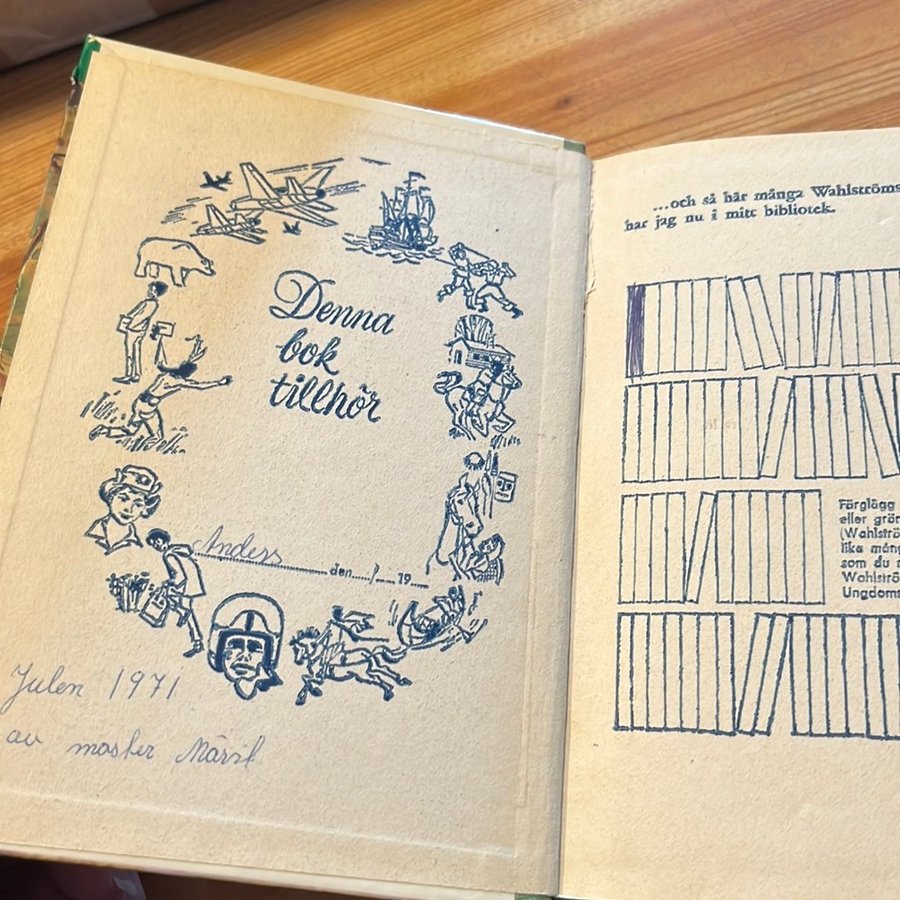 Denna
bok
tillhör
Anders
den...../..... 19.....
Julen 1971
av moster
...och så här många Wahlströms
har jag nu i mitt bibliotek.
Färglägg
eller grön
(Wahlströ
lika mång
som du
Wahlströ
Ungdoms